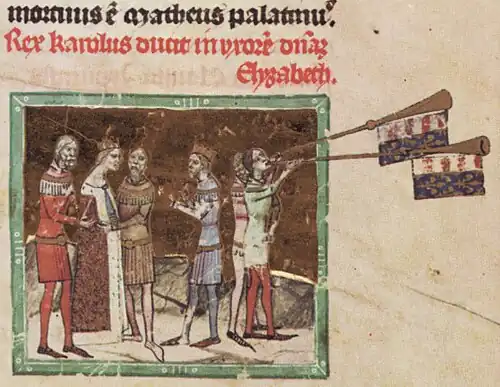 mortuus ē Matheus palatinuꝰ.
Rex Karolus ducit in vxorē dnāꝫ
Elyzabeth.